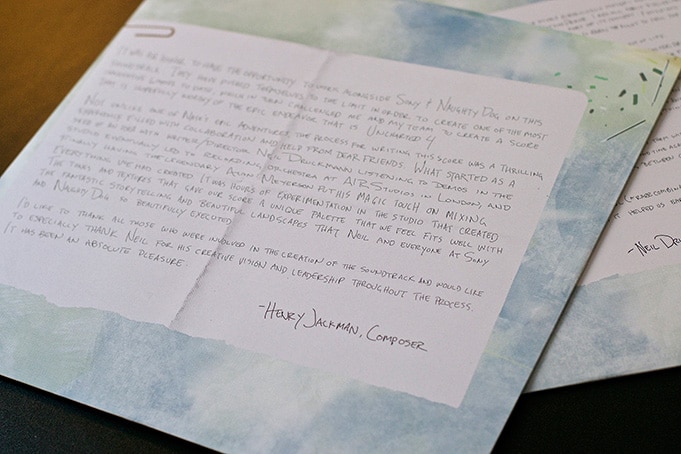 It was an honor to have the opportunity to work alongside Sony & Naughty Dog on this
soundtrack. They have pushed themselves to the limit in order to create one of the most
games to date, which in turn challenged me and my team to create a score
that is worthy of the epic endeavor that is Uncharted 4
Not unlike one of Nate's epic adventures, the process for writing this score was a thrilling
filled with collaboration and help from dear friends. What started as a
of an idea with writer/director Neil Druckmann listening to demos in the
studio eventually led to recording orchestra at AIR Studios in London, and
finally having the legendary Alan Meyerson put his magic touch on mixing
everything we had created. It was hours of experimentation in the studio that created
the tones and textures that gave our score a unique palette that we feel fits well with
the fantastic storytelling and beautiful landscapes that Neil and everyone at Sony
and Naughty Dog so beautifully executed.
I'd like to thank all those who were involved in the creation of the soundtrack and would like
to especially thank Neil for his creative vision and leadership throughout the process.
It has been an absolute pleasure.
-Henry Jackman, Composer
it helped us
-Neil